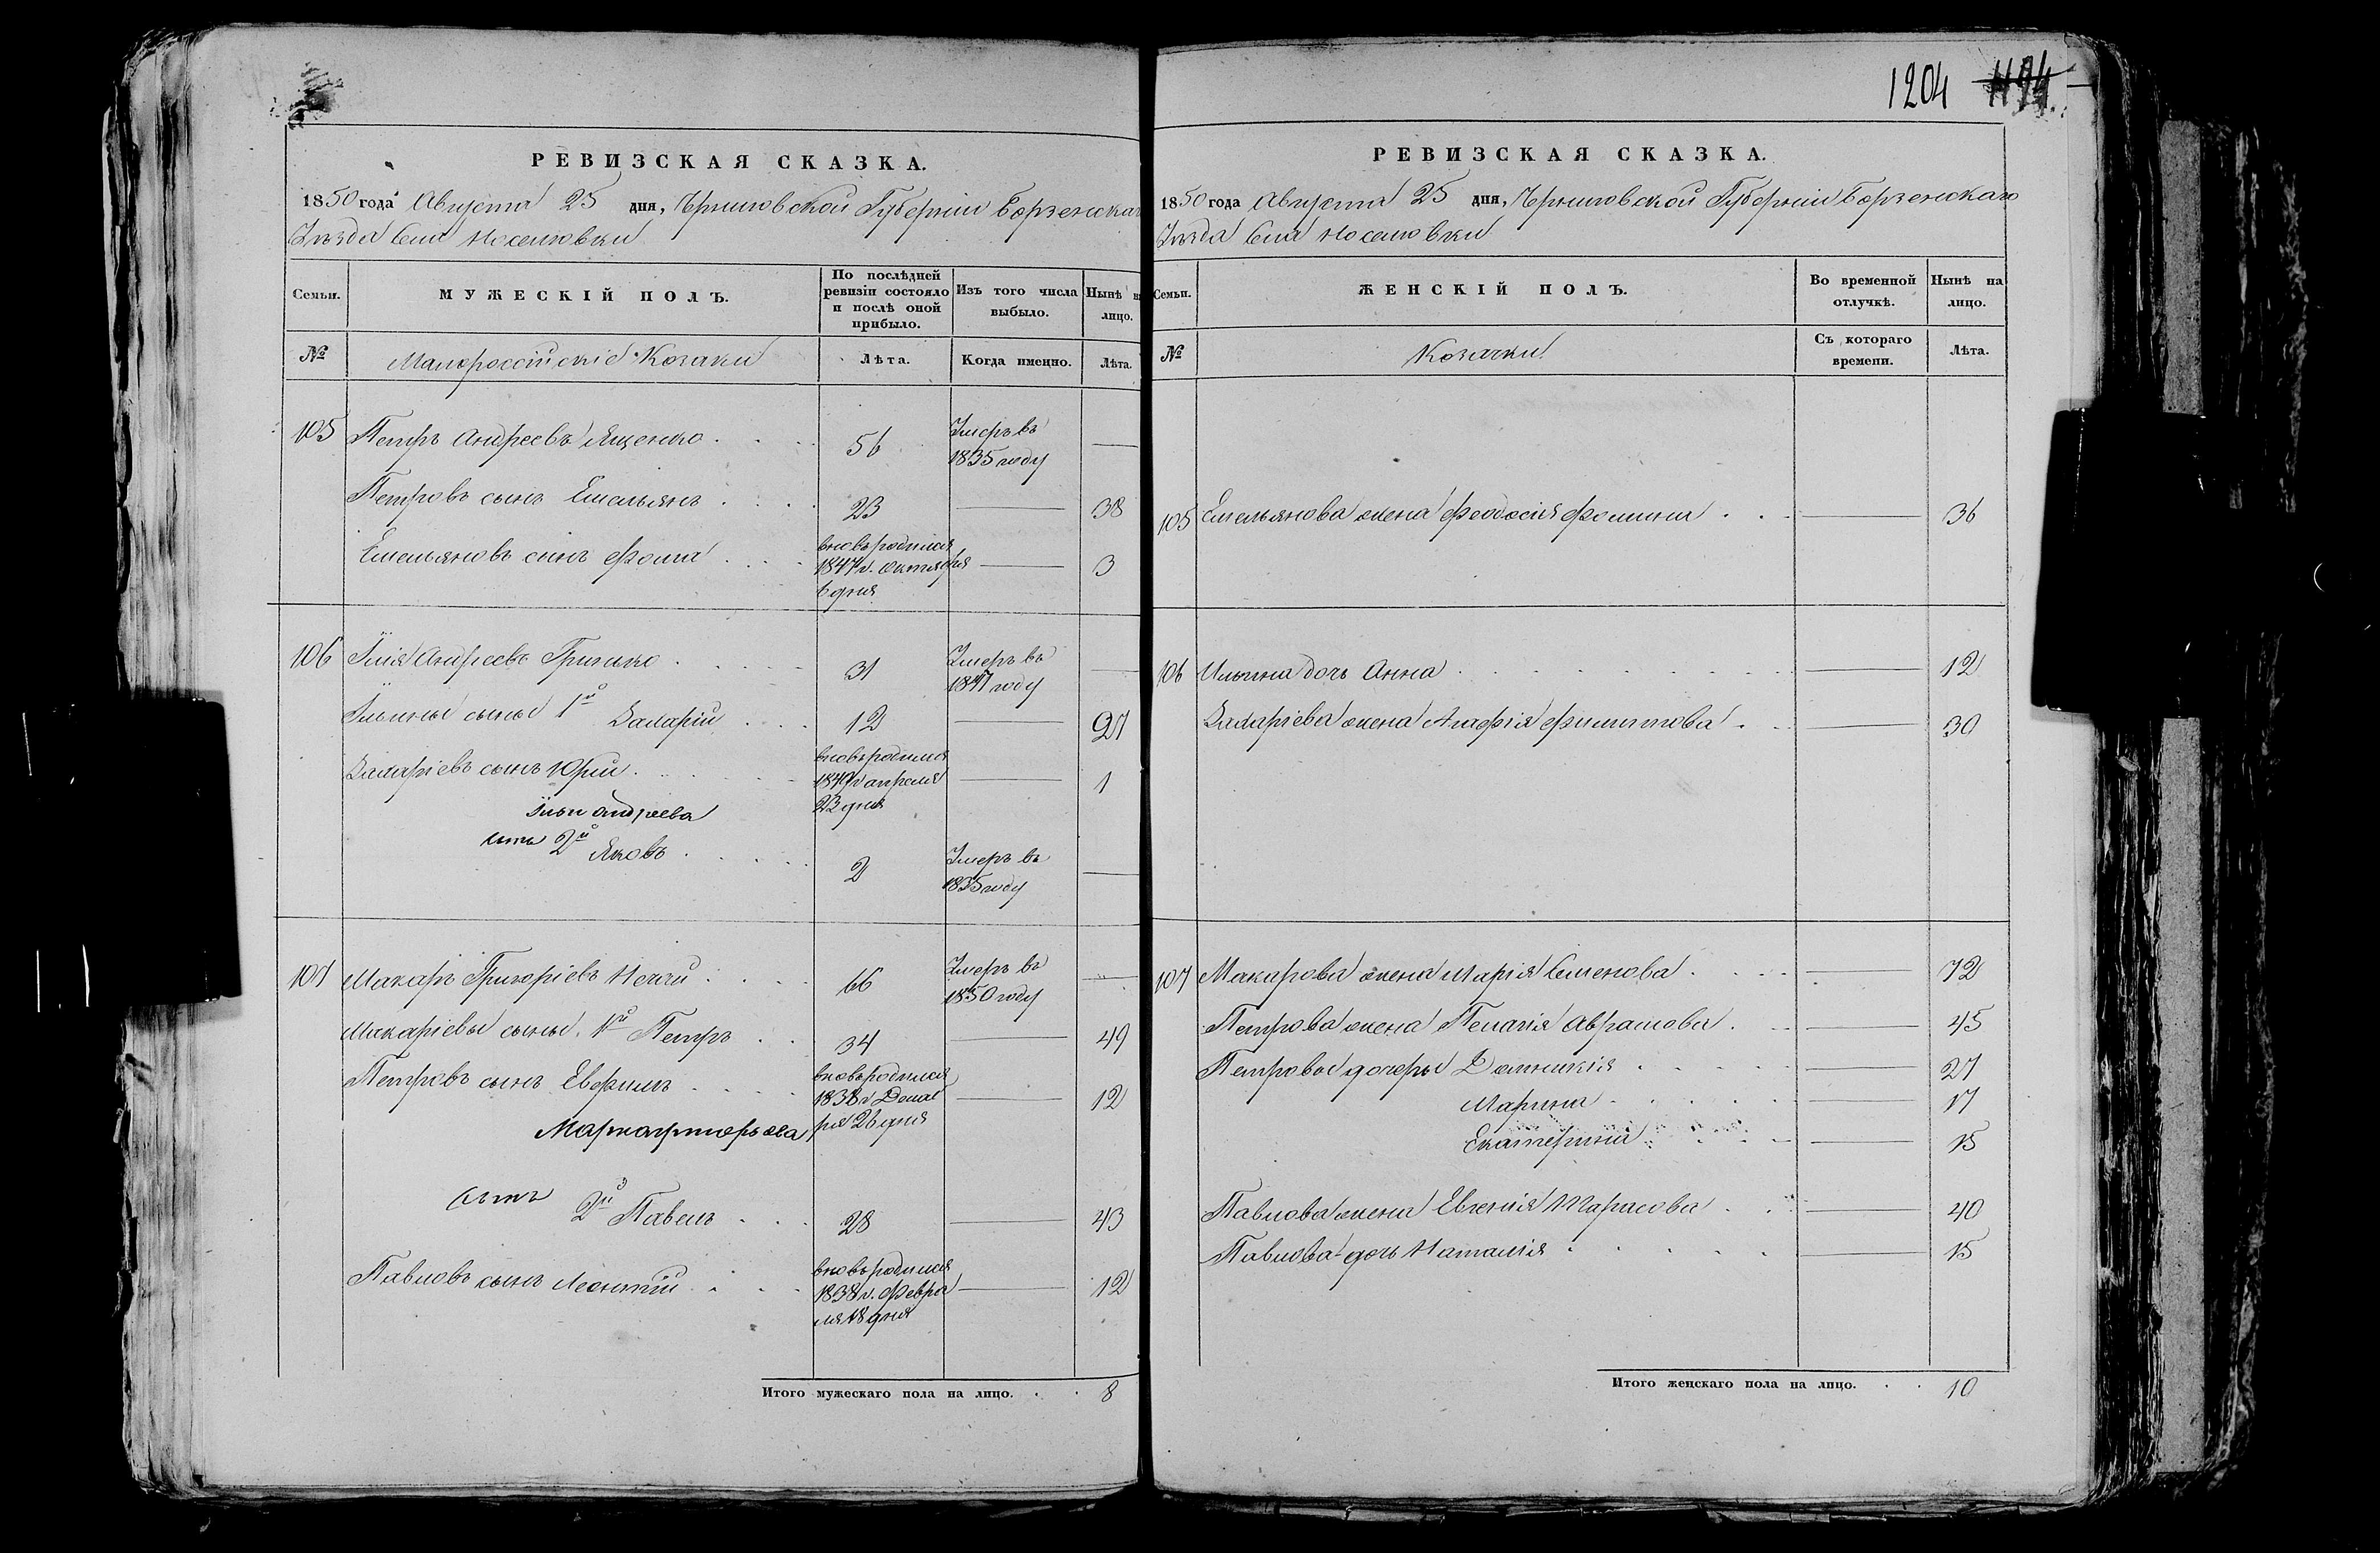 1204 1194.
РЕВИЗСКАЯ СКАЗКА.
1850 года Августа 25 дня, Черниговской Губернии Борзенскаг
Уезда Села Носеловки
Семьи. МУЖЕСКІЙ ПОЛЪ. По послѣдней ревизіи состояло и послѣ оной прибыло. Изъ того числа выбыло. Нынѣ на лицо.
№ Малороссійскіе Козаки Лѣта. Когда именно. Лѣта.
105 Петръ Андреевъ Ященко 56 Умеръ въ
1835 году
Петровъ сынъ Емельянъ 23 38
Емельяновъ сынъ Фома вновь родился 3
1847 г. октября
6 дня
106 Илія Андреевъ Гришко 31 Умеръ въ
1847 году
Ильины сыны 1й Захарій 12 27
Захаріевъ сынъ Юрій вновь родился 1
1849 г апреля
23 дня
Ильи Андреева
сынъ 2й Яковъ 2 Умеръ въ
1835 году
107 Макаръ Григоріевъ Нечай 66 Умеръ въ
1850 году
Макаріевы сыны 1й Петръ 34 49
Петровъ сынъ Евфимъ вновь родился 12
1838 г Декаб
ря 26 дня
сынъ 2й Павелъ 28 43
Павловъ сынъ Леонтій вновь родился 12
1838 г. Февра
ля 18 дня
Итого мужескаго пола на лицо. 8
РЕВИЗСКАЯ СКАЗКА.
1850 года Августа 25 дня, Черниговской Губернии Борзенскаго
Уезда Села Носеловки
Семьи. ЖЕНСКІЙ ПОЛЪ. Во временной отлучкѣ. Нынѣ на лицо.
№ Козачки Съ котораго времени. Лѣта.
105 Емельянова жена Феодосія Фомина 36
106 Ильина дочь Анна 12
Захаріева жена Агафія Филиппова 30
107 Макарова жена Марія Семенова 72
Петрова жена Пелагія Аврамова 45
Петровы дочеры Домникія 27
Марина 17
Екатерина 15
Павлова жена Евгенія Тарасова 40
Павлова дочь Наталія 15
Итого женскаго пола на лицо. 10